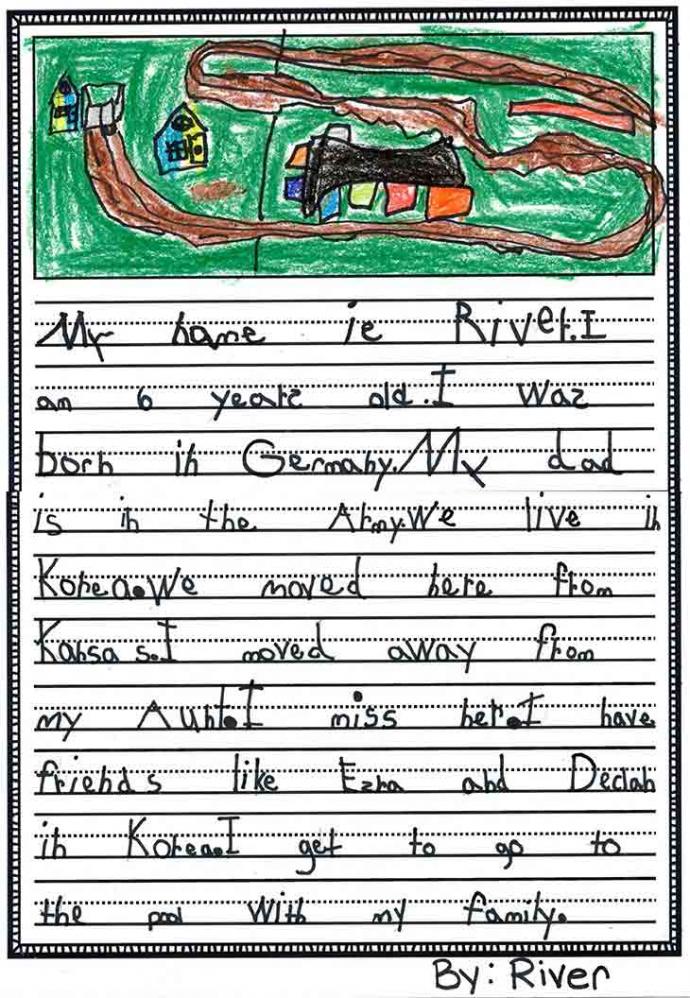 My name is River.I
am 6 years old.I was
born in Germany.My dad
is in the Army.We live in
Korea.We moved here from
Kansas.I moved away from
my Aunt.I miss her.I have
friends like Ezra and Declan
in Korea.I get to go to
the pool with my family.
By: River